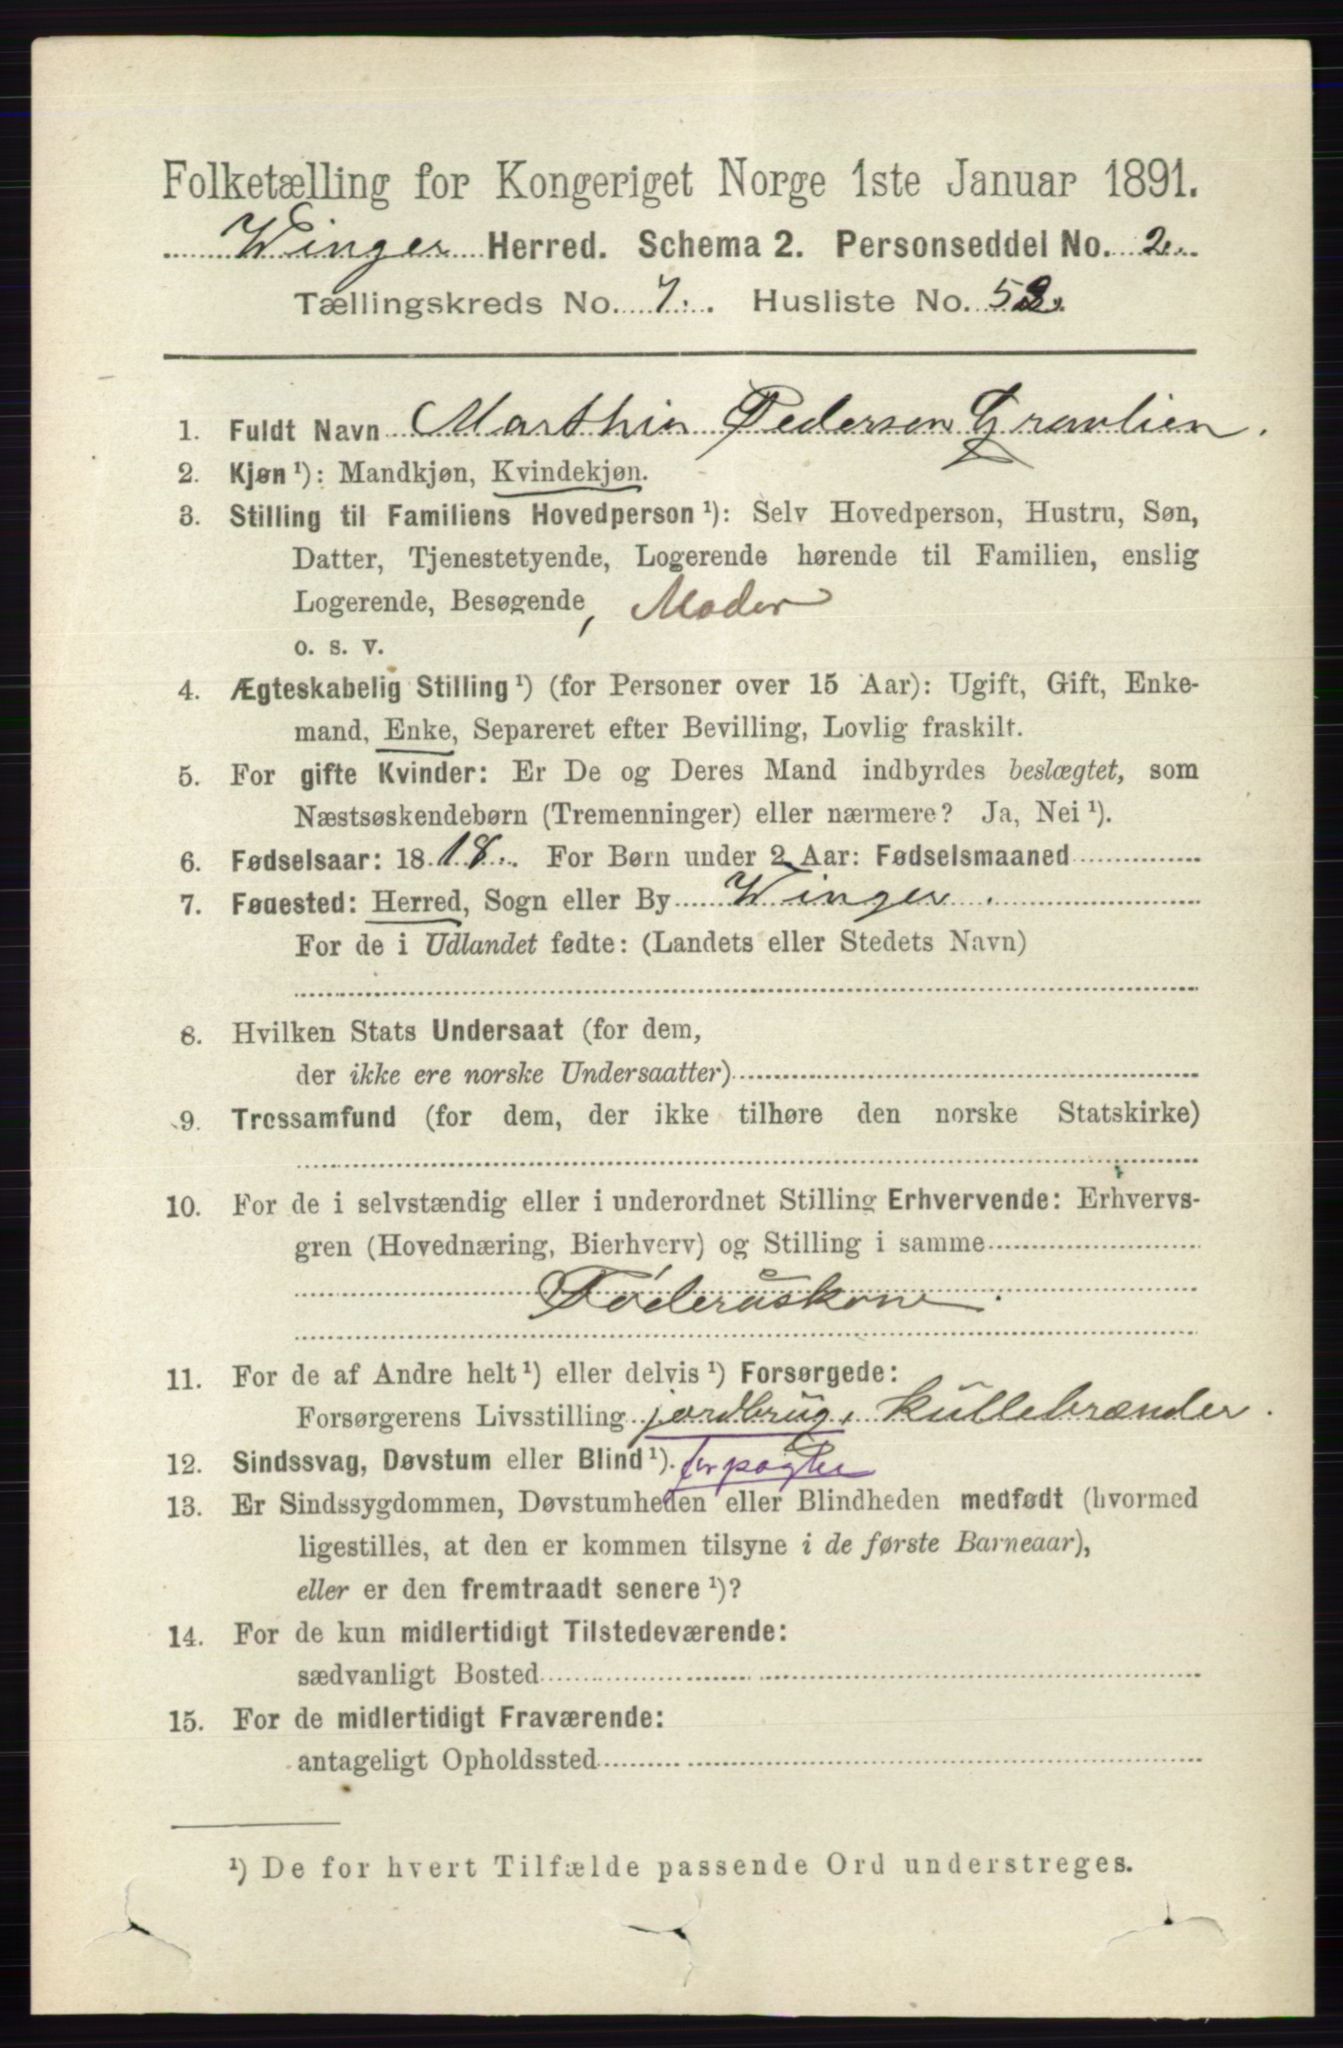 Folketælling for Kongeriget Norge 1ste Januar 1891.
Winger Herred. Schema 2. Personseddel No. 2.
Tællingskreds No. 7. Husliste No. 52.
1. Fuldt Navn Marthia Pedersen Gravlien.
2. Kjøn ¹): Mandkjøn, Kvindekjøn.
3. Stilling til Familiens Hovedperson ¹): Selv Hovedperson, Hustru, Søn,
Datter, Tjenestetyende, Logerende hørende til Familien, enslig
Logerende, Besøgende, Moder
o. s. v.
4. Ægteskabelig Stilling ¹) (for Personer over 15 Aar): Ugift, Gift, Enke-
mand, Enke, Separeret efter Bevilling, Lovlig fraskilt.
5. For gifte Kvinder: Er De og Deres Mand indbyrdes beslægtet, som
Næstsøskendebørn (Tremenninger) eller nærmere? Ja, Nei ¹).
6. Fødselsaar: 1818. For Børn under 2 Aar: Fødselsmaaned
7. Føuested: Herred, Sogn eller By Winger.
For de i Udlandet fødte: (Landets eller Stedets Navn)
8. Hvilken Stats Undersaat (for dem,
der ikke ere norske Undersaatter)
9. Trossamfund (for dem, der ikke tilhøre den norske Statskirke)
10. For de i selvstændig eller i underordnet Stilling Erhvervende: Erhvervs-
gren (Hovednæring, Bierhverv) og Stilling i samme
Føderaskone.
11. For de af Andre helt ¹) eller delvis ¹) Forsørgede:
Forsørgerens Livsstilling jordbrug, kullebrænder.
12. Sindssvag, Døvstum eller Blind ¹). forpagter
13. Er Sindssygdommen, Døvstumheden eller Blindheden medfødt (hvormed
ligestilles, at den er kommen tilsyne i de første Barneaar),
eller er den fremtraadt senere ¹)?
14. For de kun midlertidigt Tilstedeværende:
sædvanligt Bosted
15. For de midlertidigt Fraværende:
antageligt Opholdssted
¹) De for hvert Tilfælde passende Ord understreges.